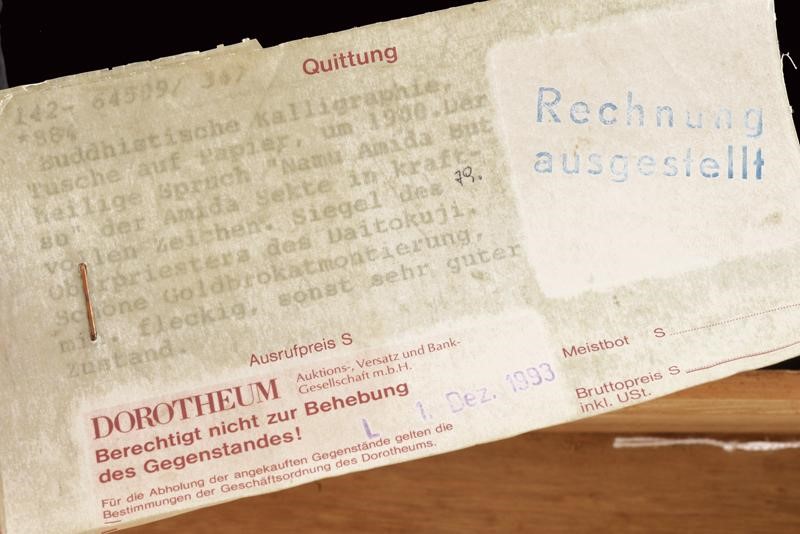 Quittung
142- 64509/ 347
*88/
Buddhistische Kalligraphie,
Tusche auf Papier, um 1900.Der
heilige Spruch "Namu Amida But
so" der Amida Sekte in kraft-
vollen Zeichen. Siegel des
79.
Oberpriesters des Daitokuji.
Schöne Goldbrokatmontierung,
min. fleckig, sonst sehr guter
Zustand.
Rechnung
ausgestellt
Ausrufpreis S
Meistbot S
Bruttopreis S
inkl. USt.
DOROTHEUM
Auktions-, Versatz und Bank-
Gesellschaft m.b.H.
Berechtigt nicht zur Behebung
des Gegenstandes!
L 1. Dez. 1993
Für die Abholung der angekauften Gegenstände gelten die
Bestimmungen der Geschäftsordnung des Dorotheums.